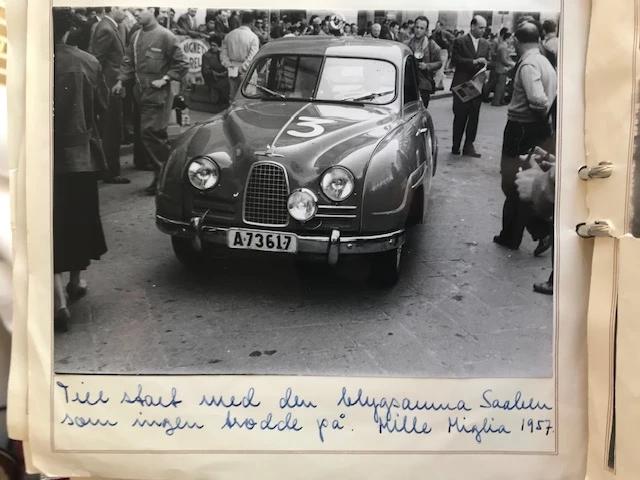 3
A·73617
Till start med den blygsamma Saaben
som ingen trodde på. Mille Miglia 1957.